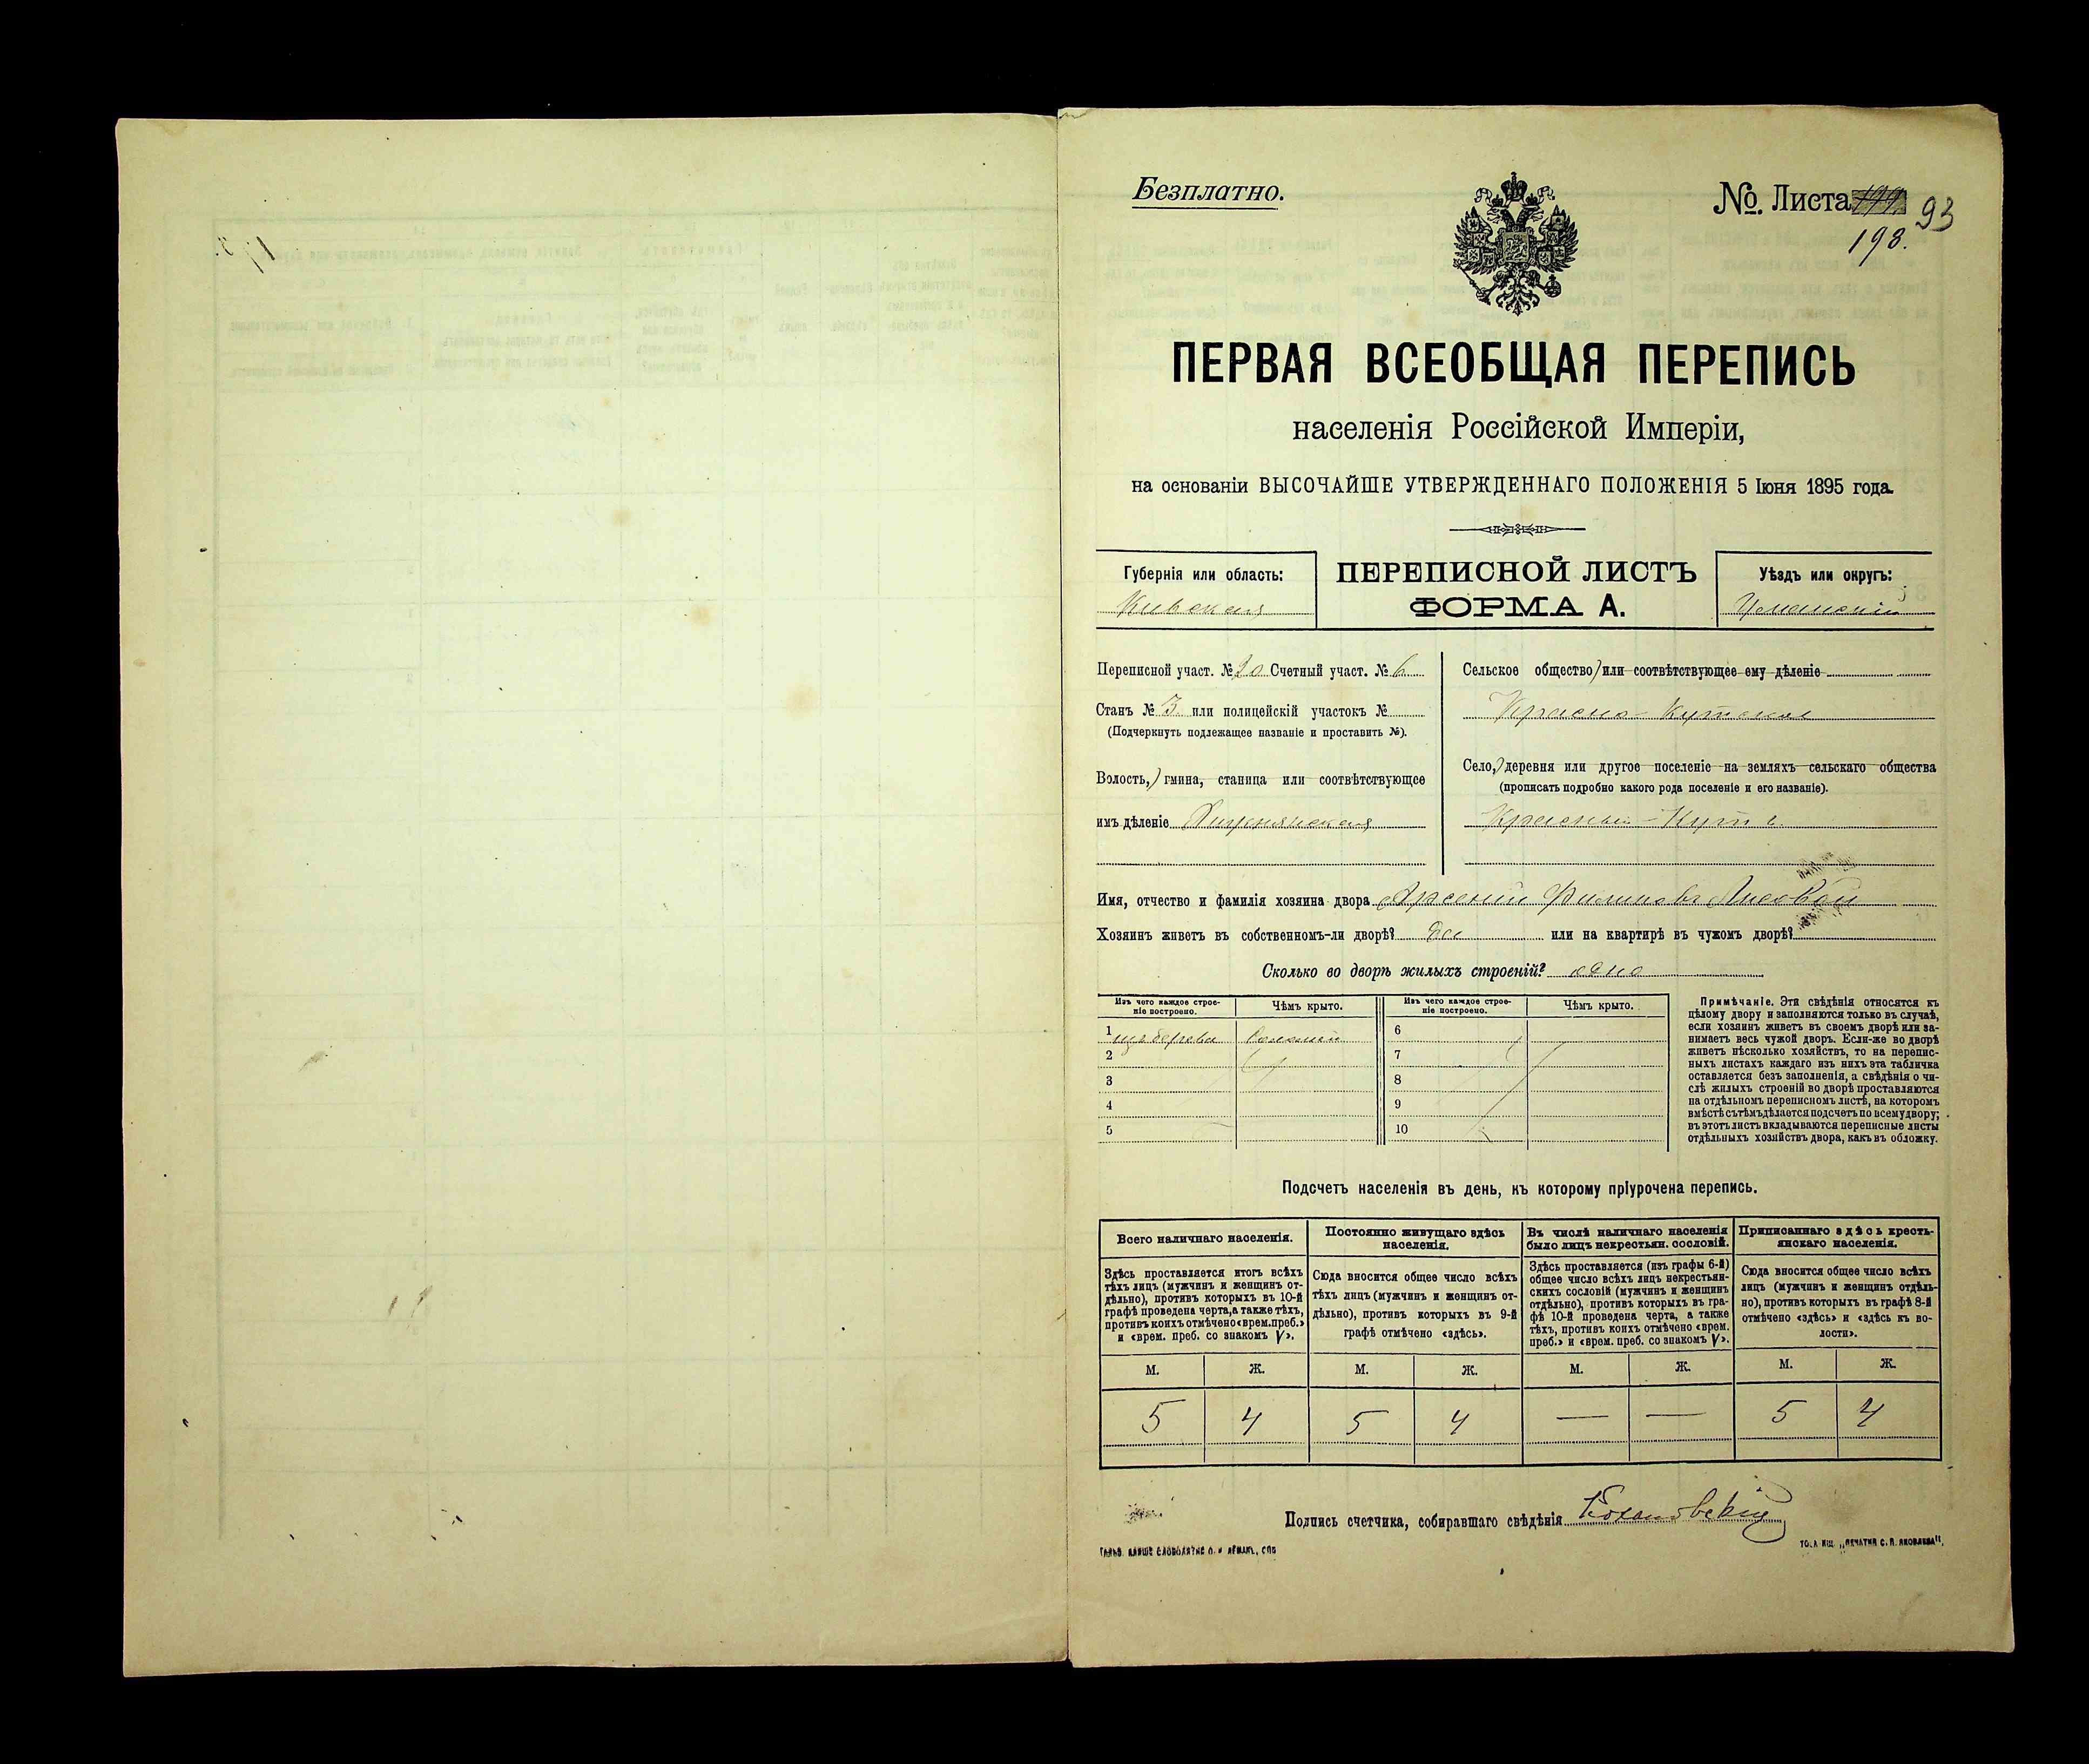 Безплатно.
№. Листа 93
198.
ПЕРВАЯ ВСЕОБЩАЯ ПЕРЕПИСЬ
населенія Россійской Имперіи,
на основаніи ВЫСОЧАЙШЕ УТВЕРЖДЕННАГО ПОЛОЖЕНІЯ 5 Іюня 1895 года.
Губернія или область:
Кіевская
ПЕРЕПИСНОЙ ЛИСТЪ
ФОРМА А.
Уѣздъ или округъ:
Уманскій
Переписной участ. № 20 Счетный участ. № 6
Станъ № 3 или полицейскій участокъ №
(Подчеркнуть подлежащее названіе и проставить №).
Волость, гмина, станица или соотвѣтствующее
имъ дѣленіе
Сельское общество или соотвѣтствующее ему дѣленіе
Красно-Кутское
Село, деревня или другое поселеніе на земляхъ сельскаго общества
(прописать подробно какого рода поселеніе и его названіе).
Красный-Кутъ
Имя, отчество и фамилія хозяина двора Арсеній Филиповъ
Хозяинъ живетъ въ собственномъ-ли дворѣ? Да или на квартирѣ въ чужомъ дворѣ?
Сколько во дворѣ жилыхъ строеній? одно
Изъ чего каждое строе-
ніе построено.
Чѣмъ крыто.
Изъ чего каждое строе-
ніе построено.
Чѣмъ крыто.
1 изъ дерева Соломой
2
3
4
5
6
7
8
9
10
Примѣчаніе. Эти свѣдѣнія относятся къ
цѣлому двору и заполняются только въ случаѣ,
если хозяинъ живетъ въ своемъ дворѣ или за-
нимаетъ весь чужой дворъ. Если-же во дворѣ
живетъ нѣсколько хозяйствъ, то на перепис-
ныхъ листахъ каждаго изъ нихъ эта табличка
оставляется безъ заполненія, а свѣдѣнія о чи-
слѣ жилыхъ строеній во дворѣ проставляются
на отдѣльномъ переписномъ листѣ, на которомъ
вмѣстѣ съ тѣмъ дѣлается подсчетъ по всему двору;
въ этотъ листъ вкладываются переписные листы
отдѣльныхъ хозяйствъ двора, какъ въ обложку.
Подсчетъ населенія въ день, къ которому пріурочена перепись.
Всего наличнаго населенія.
Здѣсь проставляется итогъ всѣхъ
тѣхъ лицъ (мужчинъ и женщинъ от-
дѣльно), противъ которыхъ въ 10-й
графѣ проведена черта, а также тѣхъ,
противъ коихъ отмѣчено «врем. преб.»
и «врем. преб. со знакомъ V».
М. Ж.
5 4
Постоянно живущаго здѣсь
населенія.
Сюда вносится общее число всѣхъ
тѣхъ лицъ (мужчинъ и женщинъ от-
дѣльно), противъ которыхъ въ 9-й
графѣ отмѣчено «здѣсь».
М. Ж.
5 4
Въ числѣ наличнаго населенія
было лицъ некрестьян. сословій.
Здѣсь проставляется (изъ графы 6-й)
общее число всѣхъ лицъ некрестьян-
скихъ сословій (мужчинъ и женщинъ
отдѣльно), противъ которыхъ въ гра-
фѣ 10-й проведена черта, а также
тѣхъ, противъ коихъ отмѣчено «врем.
преб.» и «врем. преб. со знакомъ V».
М. Ж.
— —
Приписаннаго здѣсь кресть-
янскаго населенія.
Сюда вносится общее число всѣхъ
лицъ (мужчинъ и женщинъ отдѣль-
но), противъ которыхъ въ графѣ 8-й
отмѣчено «здѣсь» и «здѣсь къ во-
лости».
М. Ж.
5 4
Подпись счетчика, собиравшаго свѣдѣнія Кохановскій